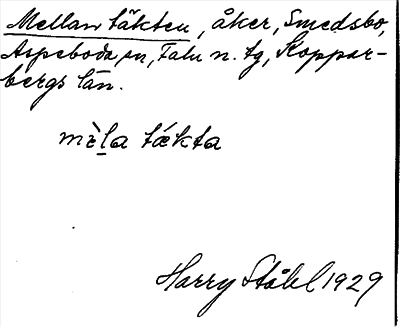 Mellan täkten, åker, Smedsbo,
Aspeboda sn, Falu n. tg, Koppar-
bergs län.
mὲla tǽkta
Harry Ståhl 1929